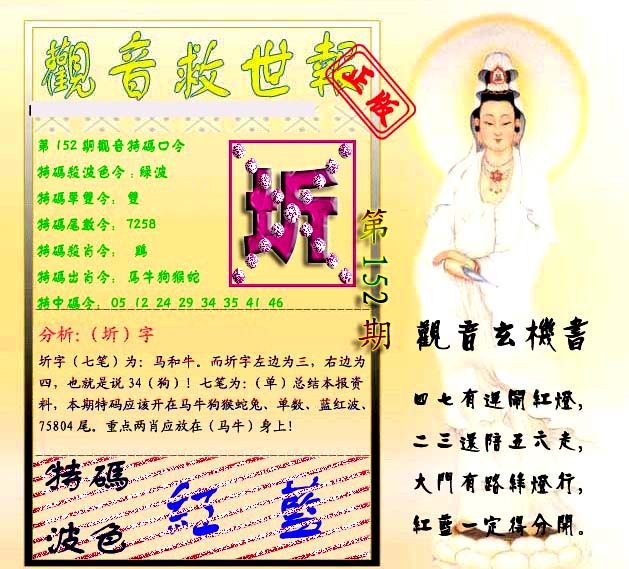 觀音救世報
正版
第152期觀音特碼口令
特碼殺波色令:綠波
特碼單雙令: 雙
特碼尾數令: 7258
特碼殺肖令: 鷄
特碼出肖令: 馬牛狗猴蛇
特中碼令: 05 12 24 29 34 35 41 46
圻
第152期
分析:(圻)字
圻字(七笔)为: 马和牛。而圻字左边为三,右边为
四,也就是说34(狗)! 七笔为:(单)总结本报资
料,本期特码应该开在马牛狗猴蛇兔、单数、蓝红波、
75804尾。重点两肖应放在(马牛)身上!
特碼
波色
紅 藍
觀音玄機書
四七有運開紅燈,
二三還陪五六走,
大門有路綠燈行,
紅藍一定得分開。